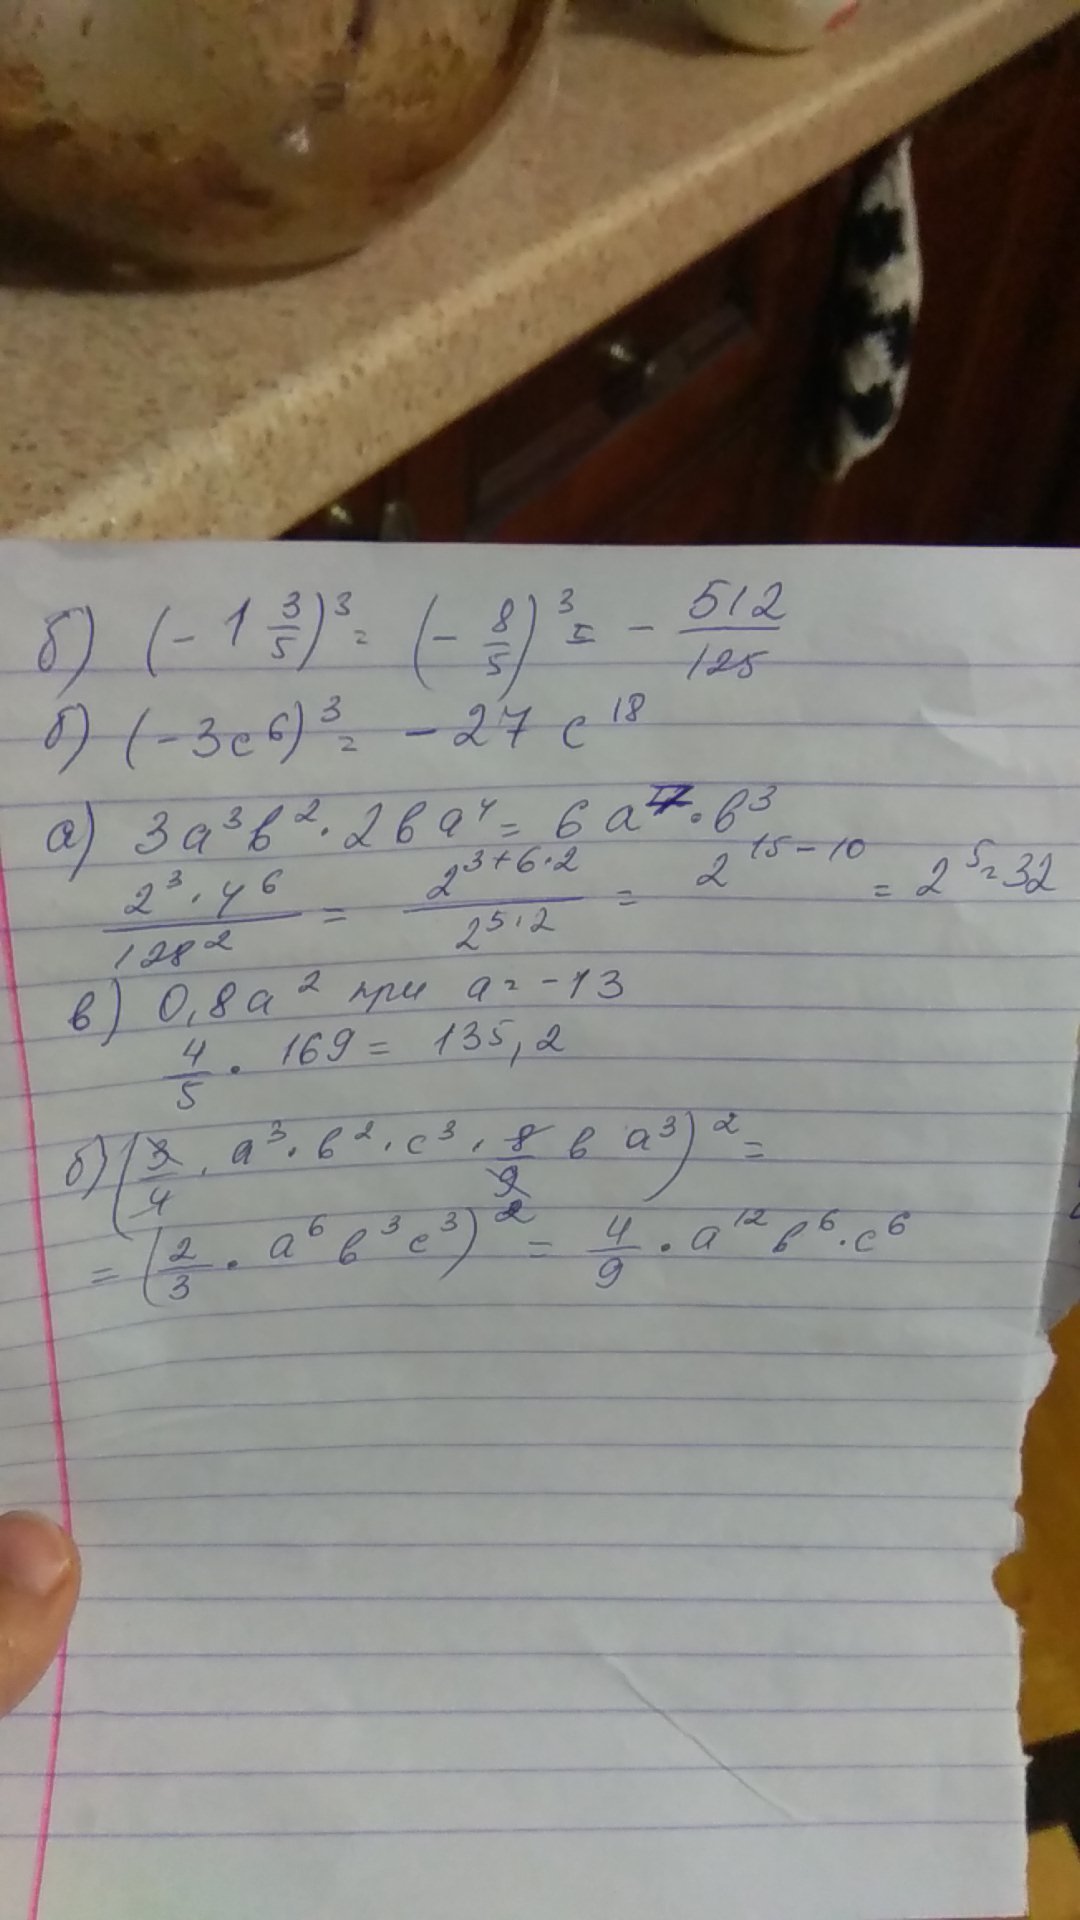 б) (-1 3/5)³ = (- 8/5)³ = - 512/125
б) (-3c⁶)³ = -27 c¹⁸
а) 3a³b²·2ba⁴ = 6a⁷·b³
2³·4⁶/128² = 2³⁺⁶·²/2⁵·² = 2¹⁵⁻¹⁰ = 2⁵ = 32
в) 0,8a² при a = -13
4/5 · 169 = 135,2
б) (3/4 · a³·b²·c³ · 8/9 b a³)² =
= (2/3 · a⁶b³c³)² = 4/9 · a¹²b⁶·c⁶